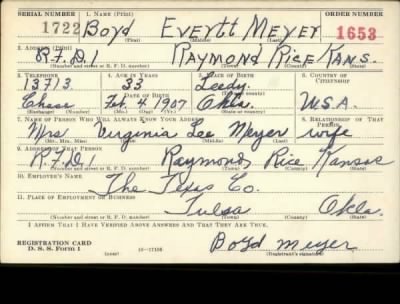 SERIAL NUMBER 1. NAME (Print) ORDER NUMBER
1722 Boyd Everett Meyer 1653
(First) (Middle) (Last)
2. ADDRESS (Print)
R.F.D.1 Raymond Rice Kans.
(Number and street or R. F. D. number) (Town) (County) (State)
3. TELEPHONE 4. AGE IN YEARS 5. PLACE OF BIRTH 6. COUNTRY OF CITIZENSHIP
13713 33 Leedy
DATE OF BIRTH (Town or county)
Chase Feb. 4, 1907 Okla. U.S.A.
(Exchange) (Mo.) (Day) (Yr.) (State or country)
7. NAME OF PERSON WHO WILL ALWAYS KNOW YOUR ADDRESS 8. RELATIONSHIP OF THAT PERSON
Mrs. Virginia Lee Meyer wife
(Mr., Mrs., Miss) (First) (Middle) (Last)
9. ADDRESS OF THAT PERSON
R.F.D.1 Raymond Rice Kansas
(Number and street or R. F. D. number) (Town) (County) (State)
10. EMPLOYER'S NAME
The Texas Co.
11. PLACE OF EMPLOYMENT OR BUSINESS
Tulsa Okla.
(Number and street or R. F. D. number) (Town) (County) (State)
I AFFIRM THAT I HAVE VERIFIED ABOVE ANSWERS AND THAT THEY ARE TRUE.
REGISTRATION CARD
D. S. S. Form 1 16—17105 Boyd Meyer
(Registrant's signature)